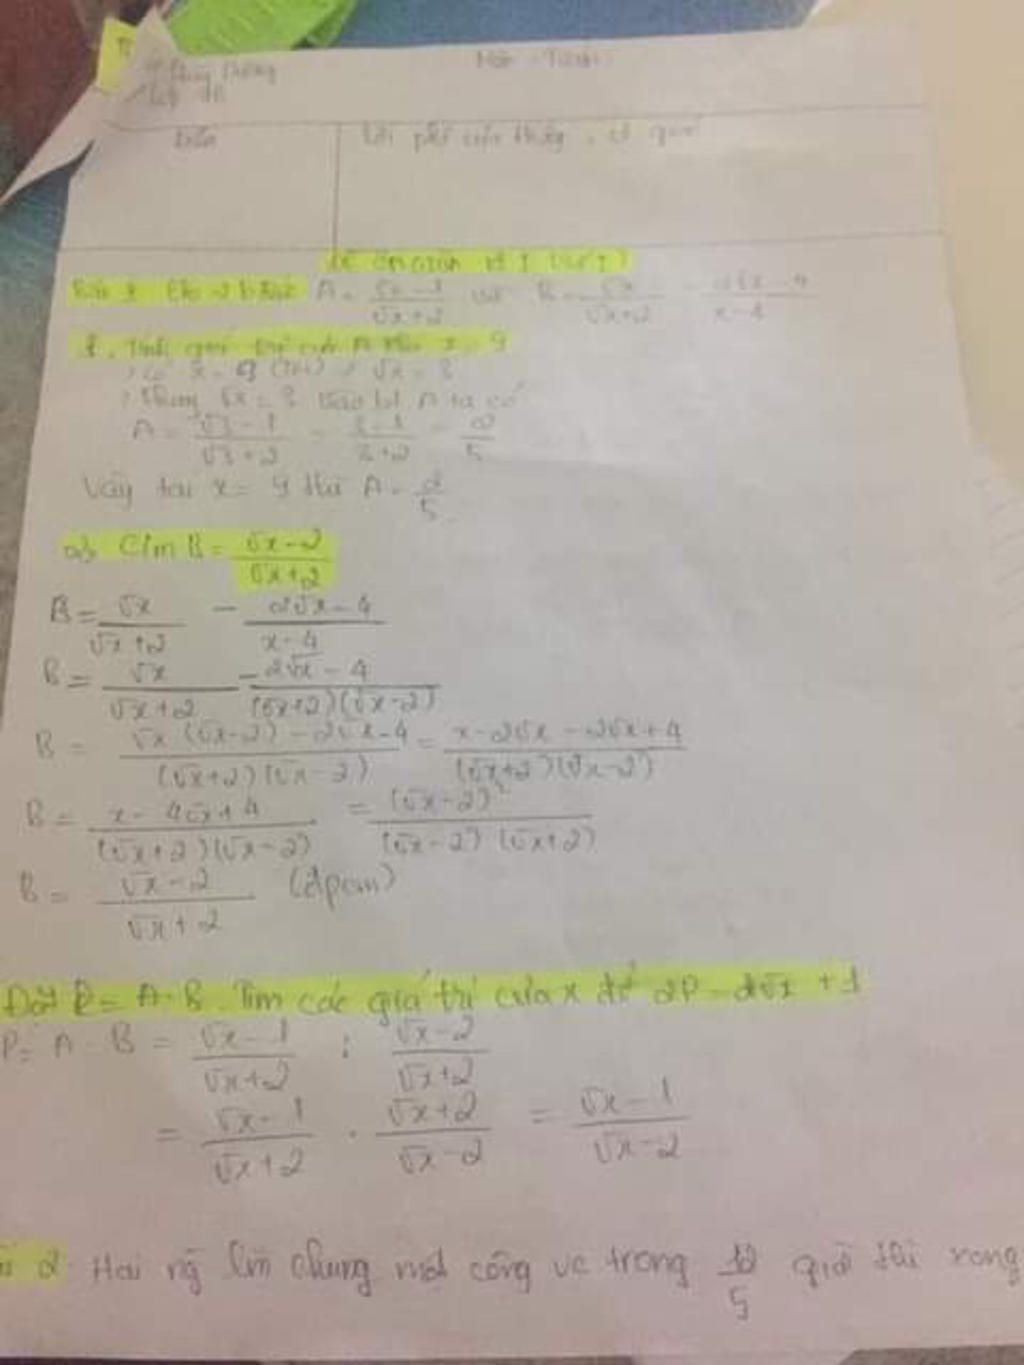 Lời phê của thầy, cô giáo
A = (√x - 1)/(√x + 2) và B = √x/(√x + 2) - (2√x - 4)/(x - 4)
1. Tính giá trị của A khi x = 9
√x = 3
Thay √x = 3 vào bt A ta có
A = (√3 - 1)/(√3 + 2) = (3 - 1)/(3 + 2) = 2/5
Vậy tại x = 9 thì A = 2/5
2, C/m B = (√x - 2)/(√x + 2)
B = √x/(√x + 2) - (2√x - 4)/(x - 4)
B = √x/(√x + 2) - (2√x - 4)/((√x + 2)(√x - 2))
B = (√x(√x - 2) - 2√x - 4)/((√x + 2)(√x - 2)) = (x - 2√x - 2√x + 4)/((√x + 2)(√x - 2))
B = (x - 4√x + 4)/((√x + 2)(√x - 2)) = (√x - 2)²/((√x - 2)(√x + 2))
B = (√x - 2)/(√x + 2) (đpcm)
Đặt P = A : B. Tìm các giá trị của x để 2P = 2√x + 1
P = A : B = (√x - 1)/(√x + 2) : (√x - 2)/(√x + 2)
= (√x - 1)/(√x + 2) . (√x + 2)/(√x - 2) = (√x - 1)/(√x - 2)
2 Hai ng làm chung một công vc trong 12/5 giờ thì xong